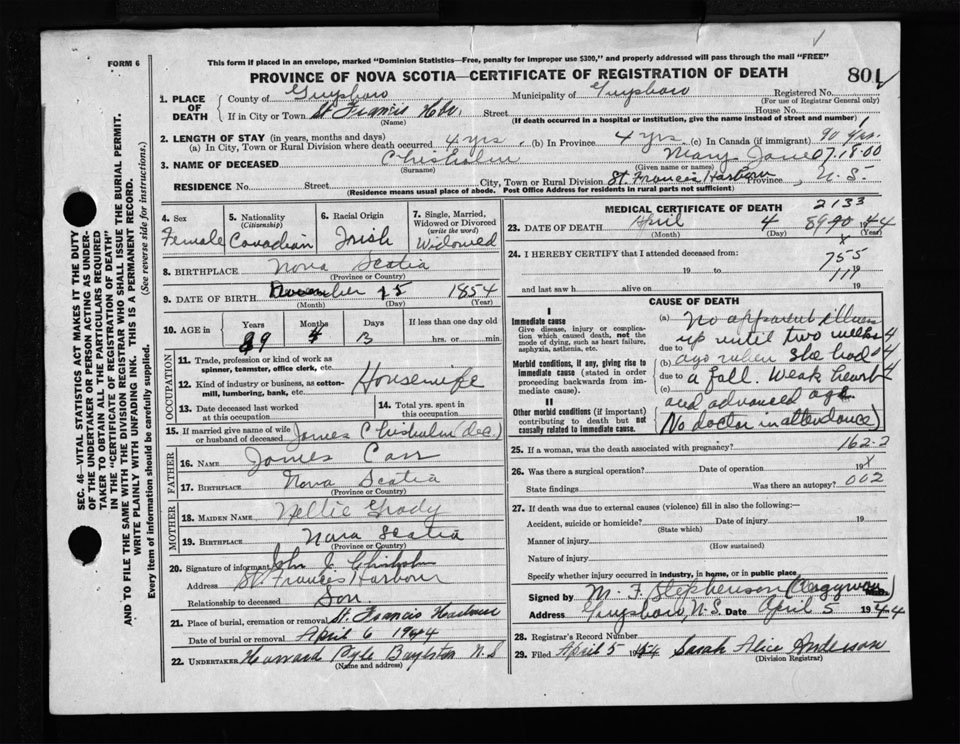 FORM 6
This form if placed in an envelope, marked "Dominion Statistics—Free, penalty for improper use $300," and properly addressed will pass through the mail "FREE"
PROVINCE OF NOVA SCOTIA—CERTIFICATE OF REGISTRATION OF DEATH
801
1. PLACE OF DEATH
County of Guysboro Municipality of Guysboro Registered No.
(For use of Registrar General only)
If in City or Town St Francis Hbr. Street House No.
(Name) (If death occurred in a hospital or institution, give the name instead of street and number)
2. LENGTH OF STAY (in years, months and days)
(a) In City, Town or Rural Division where death occurred 4 yrs. (b) In Province 4 yrs. (c) In Canada (if immigrant) 90 yrs.
3. NAME OF DECEASED Chisholm Mary Jane 07.18.00
(Surname) (Given name or names)
RESIDENCE No. Street City, Town or Rural Division St. Francis Harbour Province N.S.
(Residence means usual place of abode. Post Office Address for residents in rural parts not sufficient)
4. Sex Female
5. Nationality (Citizenship) Canadian
6. Racial Origin Irish
7. Single, Married, Widowed or Divorced (write the word) Widowed
8. BIRTHPLACE Nova Scotia
(Province or Country)
9. DATE OF BIRTH November 15 1854
(Month) (Day) (Year)
10. AGE in Years Months Days If less than one day old
89 4 hrs. or min.
OCCUPATION
11. Trade, profession or kind of work as spinner, teamster, office clerk, etc.
12. Kind of industry or business, as cotton-mill, lumbering, bank, etc.
Housewife
13. Date deceased last worked at this occupation
14. Total yrs. spent in this occupation
15. If married give name of wife or husband of deceased James Chisholm (dec.)
FATHER
16. NAME James Carr
17. BIRTHPLACE Nova Scotia
(Province or Country)
MOTHER
18. MAIDEN NAME Nellie Grady
19. BIRTHPLACE Nova Scotia
(Province or Country)
20. Signature of informant John J. Chisholm
Address St. Francis Harbour
Relationship to deceased Son.
21. Place of burial, cremation or removal St. Francis Harbour
Date of burial or removal April 6 1944
22. UNDERTAKER Howard Pyle Boylston N.S
(Name and address)
MEDICAL CERTIFICATE OF DEATH 2133
23. DATE OF DEATH April 4 89-90 1944
(Month) (Day) (Year)
24. I HEREBY CERTIFY that I attended deceased from: 755
19 to 19
and last saw h alive on 19
111
CAUSE OF DEATH
I
Immediate cause
Give disease, injury or complication which caused death, not the mode of dying, such as heart failure, asphyxia, asthenia, etc.
Morbid conditions, if any, giving rise to immediate cause (stated in order proceeding backwards from immediate cause).
II
Other morbid conditions (if important) contributing to death but not causally related to immediate cause.
(a) No apparent illness
up until two weeks
due to
(b) ago when she had
due to a fall. Weak heart
(c)
and advanced age
(No doctor in attendance)
25. If a woman, was the death associated with pregnancy? 162-2
26. Was there a surgical operation? Date of operation 19
State findings Was there an autopsy? 002
27. If death was due to external causes (violence) fill in also the following:—
Accident, suicide or homicide? Date of injury 19
(State which)
Manner of injury
(How sustained)
Nature of injury
Specify whether injury occurred in industry, in home, or in public place
Signed by M. F. Stephenson (Clergyman)
Address Guysboro, N.S. Date April 5 1944
28. Registrar's Record Number
29. Filed April 5 1944 Sarah Alice Anderson
(Division Registrar)
SEC. 46—VITAL STATISTICS ACT MAKES IT THE DUTY
OF THE UNDERTAKER OR PERSON ACTING AS UNDER-
TAKER TO OBTAIN ALL THE PARTICULARS REQUIRED
IN THE "CERTIFICATE OF REGISTRATION OF DEATH"
AND TO FILE THE SAME WITH THE DIVISION REGISTRAR WHO SHALL ISSUE THE BURIAL PERMIT.
WRITE PLAINLY WITH UNFADING INK. THIS IS A PERMANENT RECORD.
Every item of information should be carefully supplied. (See reverse side for instructions.)